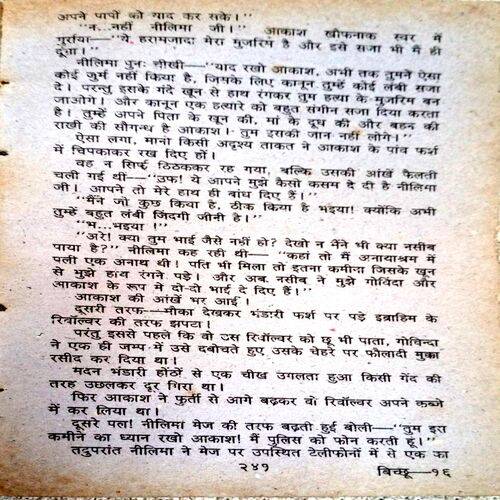 अपने पापों को याद कर सके।"
"न...नहीं नीलिमा जी।" आकाश खौफनाक स्वर में
गुर्राया—"ये हरामजादा मेरा मुजरिम है और इसे सजा भी मैं ही
दूंगा।"
नीलिमा पुनः चीखी—"याद रखो आकाश, अभी तक तुमने ऐसा
कोई जुर्म नहीं किया है, जिसके लिए कानून तुम्हें कोई लंबी सजा
दे। परन्तु इसके गंदे खून से हाथ रंगकर तुम हत्या के मुजरिम बन
जाओगे। और कानून एक हत्यारे को बहुत संगीन सजा दिया करता
है। तुम्हें अपने पिता के खून की, मां के दूध की और बहन की
राखी की सौगन्ध है आकाश। तुम इसकी जान नहीं लोगे।"
ऐसा लगा, मानों किसी अदृश्य ताकत ने आकाश के पांव फर्श
में चिपकाकर रख दिए हों।
वह न सिर्फ ठिठककर रह गया, बल्कि उसकी आंखें फैलती
चली गई थीं—"उफ! ये आपने मुझे कैसी कसम दे दी है नीलिमा
जी। आपने तो मेरे हाथ ही बांध दिए हैं।"
"मैंने जो कुछ किया है, ठीक किया है भइया! क्योंकि अभी
तुम्हें बहुत लंबी जिंदगी जीनी है।"
"भ...भइया!"
"अरे! क्या तुम भाई जैसे नहीं हो? देखो न मैंने भी क्या नसीब
पाया है?" नीलिमा कह रही थी—"कहां तो मैं अनाथाश्रम में
पली एक अनाथ थी। पति भी मिला तो इतना कमीना जिसके खून
से मुझे हाथ रंगने पड़े। और अब नसीब ने मुझे गोविन्दा और
आकाश के रूप में दो-दो भाई दे दिए हैं।"
आकाश की आंखें भर आईं।
दूसरी तरफ—मौका देखकर भंडारी फर्श पर पड़े इब्राहिम के
रिवॉल्वर की तरफ झपटा।
परंतु इससे पहले कि वो उस रिवॉल्वर को छू भी पाता, गोविन्दा
ने एक ही जम्प में उसे दबोचते हुए उसके चेहरे पर फौलादी मुक्का
रसीद कर दिया था।
मदन भंडारी होंठों से एक चीख उगलता हुआ किसी गेंद की
तरह उछलकर दूर गिरा था।
फिर आकाश ने फुर्ती से आगे बढ़कर वो रिवॉल्वर अपने कब्जे
में कर लिया था।
दूसरे पल! नीलिमा मेज की तरफ बढ़ती हुई बोली—"तुम इस
कमीने का ध्यान रखो आकाश! मैं पुलिस को फोन करती हूं।"
तदुपरांत नीलिमा ने मेज पर उपस्थित टेलीफोनों में से एक का
२४१
बिच्छू—१६